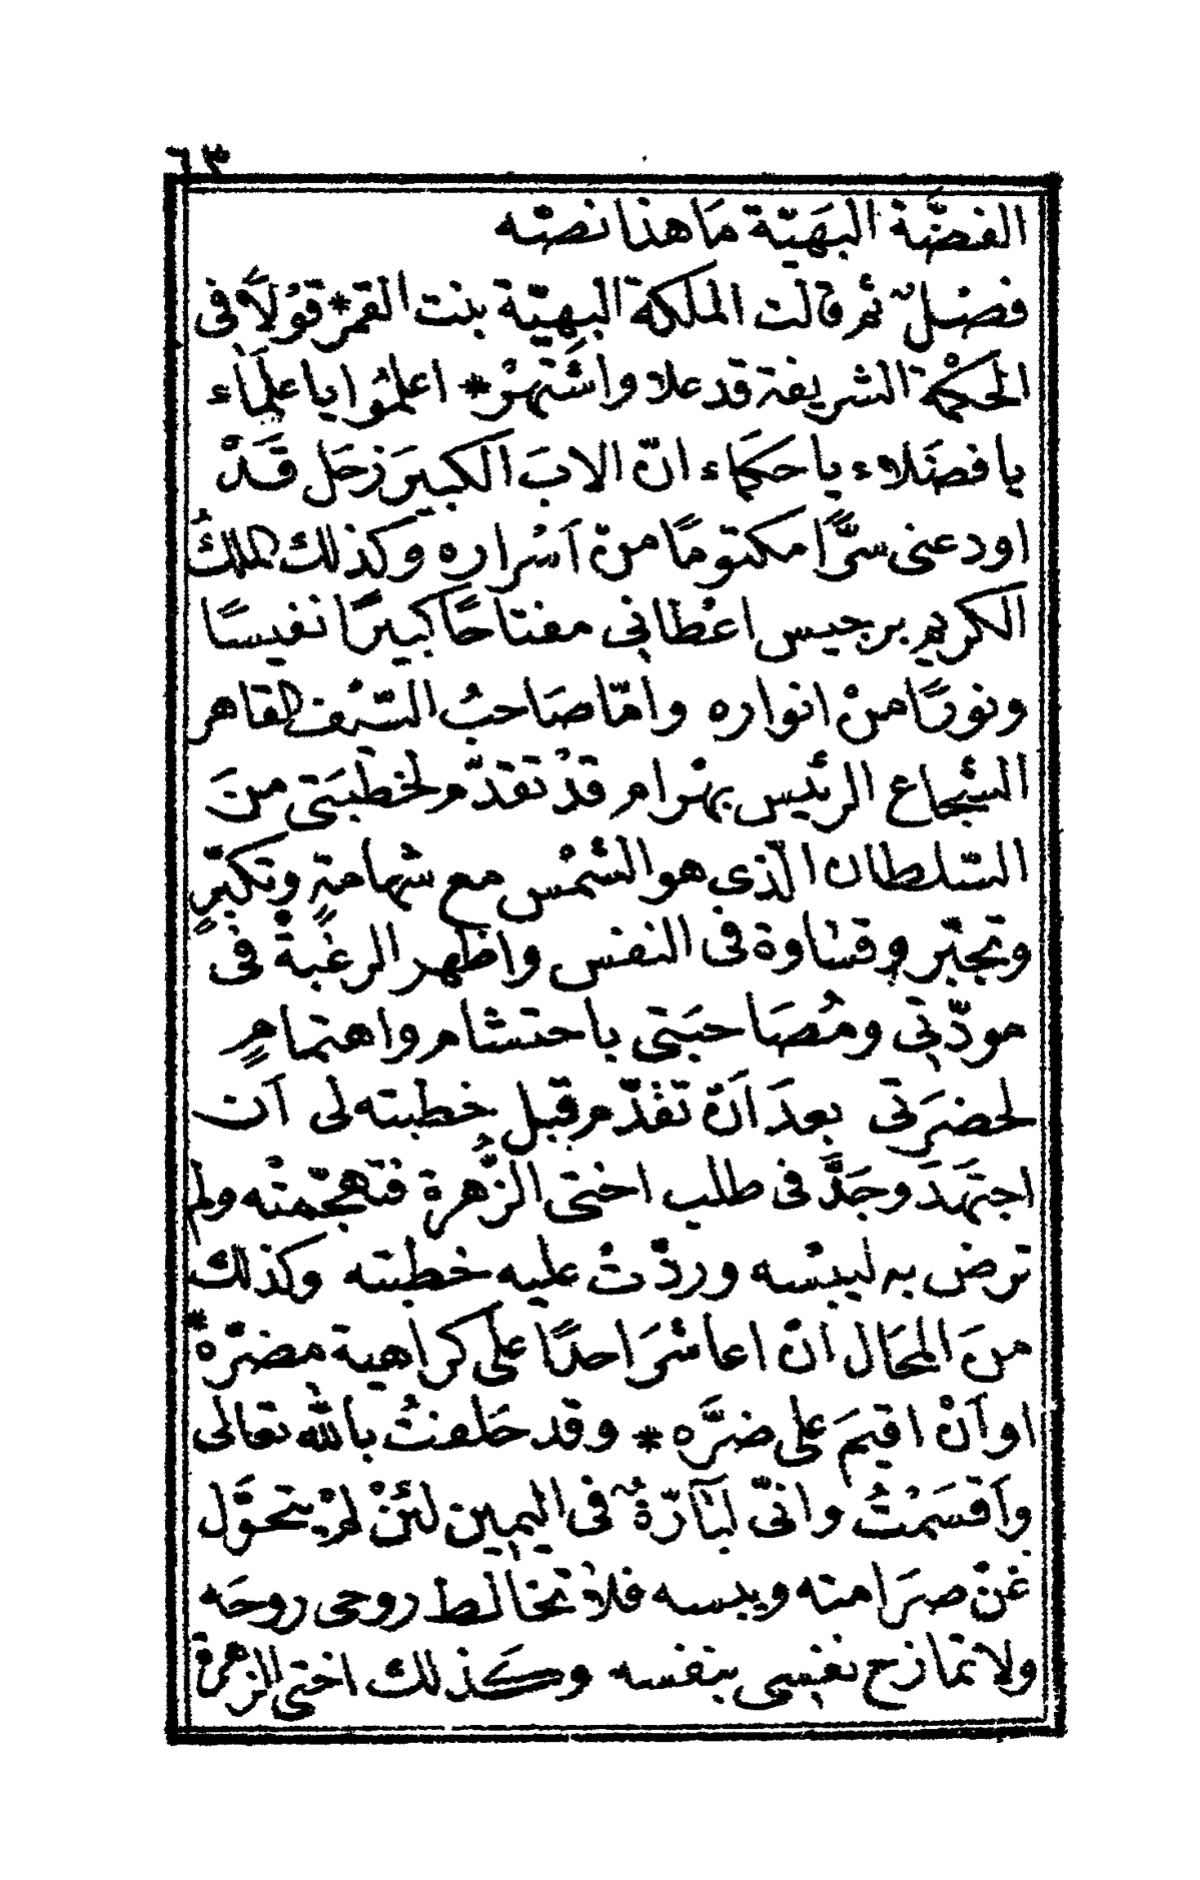 ٦٣
الفضّة البهيّة مَا هذا نصّه
فصْلٌ ثم قالت الملكة البهيّة بنت القمر * قوْلاً فى
الحكْمة الشريفة قد علا واشْتَهرْ * اعلمُوا يا علمَاء
يا فضَلاء يا حكمَاء انّ الابَ الكبيرَ زحَل قَدْ
اودعنى سرًّا مكتومًا منْ اَسْراره وكذلك الملكُ
الكريم برجيس اعْطانى مفتاحًا كبيرًا نفيسًا
ونورًا منْ انواره وامّا صَاحبُ السّيْف القاهر
الشجاع الرئيس بهْرام قدْ تقدّم لخطْبَتى منَ
السّلطان الّذى هو الشمْس مع شهامةٍ وتكبّرٍ
وتجبّر وقساوة فى النفس واظهر الرغْبةَ فى
مودّتى ومُصَاحبَتى باحتشام واهتمامٍ
لحضرَتى بعدَ اَنْ تقدّم قبل خطبته لى اَن
اجتهَدَ وجَدَّ فى طلب اختى الزُّهرة فتهجّمتْه ولم
ترض به ليبْسه وردّتْ عليه خطْبته وكذلك
منَ المحَال انْ اعاشرَ احدًا على كراهية مضرّه *
او اَنْ اقيمَ على ضرَّه * وقد حَلفتُ بالله تعالى
واَقسَمْتُ وانّى لَبَارّةٌ فى اليمين لئنْ لمْ يتحوَّل
عنْ صرَامته ويبسه فلا تخالط روحى روحَه
ولا تمازج نفسى بنفسه وكذلك اختى الزهرة